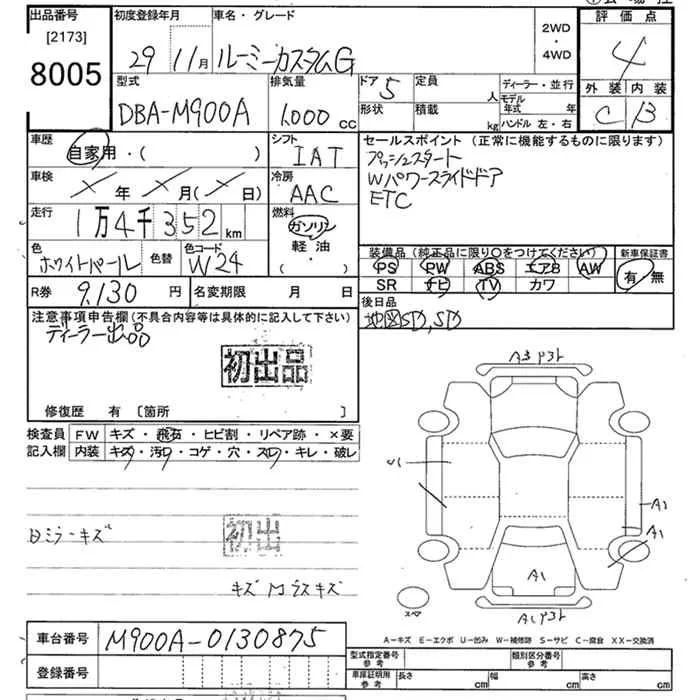 出品番号 初度登録年月 車名・グレード 2WD・4WD 評価点
[2173]
8005
29年 11月 ルーミーカスタムG 4
型式 排気量 ドア 5 定員 人 ディーラー・並行 外装 内装
DBA-M900A 1,000 cc 形状 積載 kg モデル年式 年 ハンドル 左・右 C B
車歴 自家用・( ) シフト IAT
セールスポイント (正常に機能するものに限ります)
プッシュスタート
Wパワースライドドア
ETC
車検 × 年 × 月( × 日) 冷房 AAC
走行 1万4千352km 燃料 ガソリン 軽油 ( ・ )
色 ホワイトパール 色替 色コード W24
装備品 (純正品に限り○をつけてください) 新車保証書
PS PW ABS エアB AW 有・無
SR ナビ TV カワ
R券 9,130 円 名変期限 月 日
後日品
地図SD,SD
注意事項申告欄 (不具合内容等は具体的に記入して下さい)
ディーラー出品
初出品
修復歴 有 [箇所 ]
検査員 FW キズ・飛石・ヒビ割・リペア跡・×要
記入欄 内装 キズ・汚レ・コゲ・穴・スレ・キレ・破レ
A3
U1
A1
A1
A1
A1
初出
スペア
A-キズ E-エクボ U-凹み W-補修跡 S-サビ C-腐食 XX-交換済
車台番号 M900A-0130875
登録番号
型式指定番号 参考 類別区分番号 参考
車庫証明用 参考 長さ cm 幅 cm 高さ cm